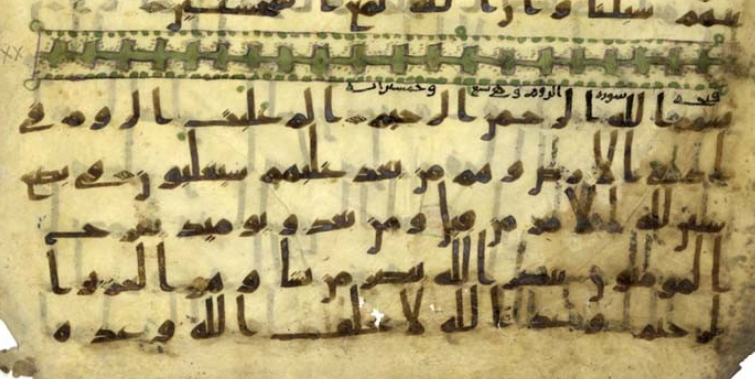 ينهم سبلنا وان الله لمع المحسنين
فتحه سورة الروم وهي تسع وخمسين اية
بسم الله الرحمن الرحيم الم غلبت الروم في
ادنى الارض وهم من بعد غلبهم سيغلبون في بضع
سنين لله الامر من قبل ومن بعد ويوميذ يفرح
المومنون بنصر الله ينصر من يشا وهو العزيز ا
لرحيم وعد الله لا يخلف الله وعده